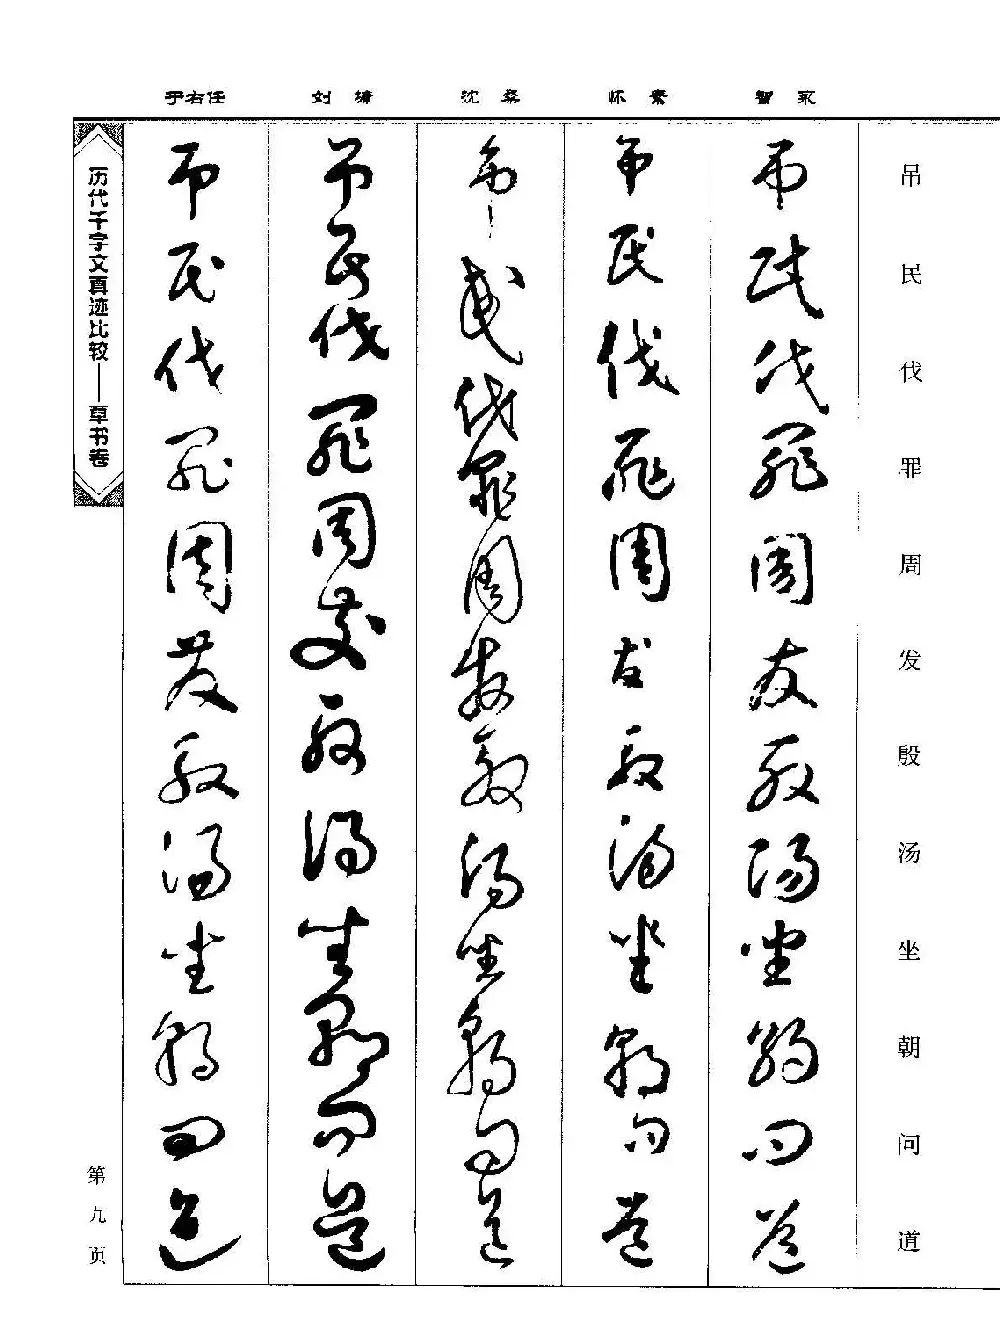 智永 怀素 沈粲 刘墉 于右任
吊民伐罪周发殷汤坐朝问道
吊民伐罪周发殷汤坐朝问道
吊民伐罪周发殷汤坐朝问道
吊民伐罪周发殷汤坐朝问道
吊民伐罪周发殷汤坐朝问道
吊民伐罪周发殷汤坐朝问道
历代千字文真迹比较——草书卷
第九页